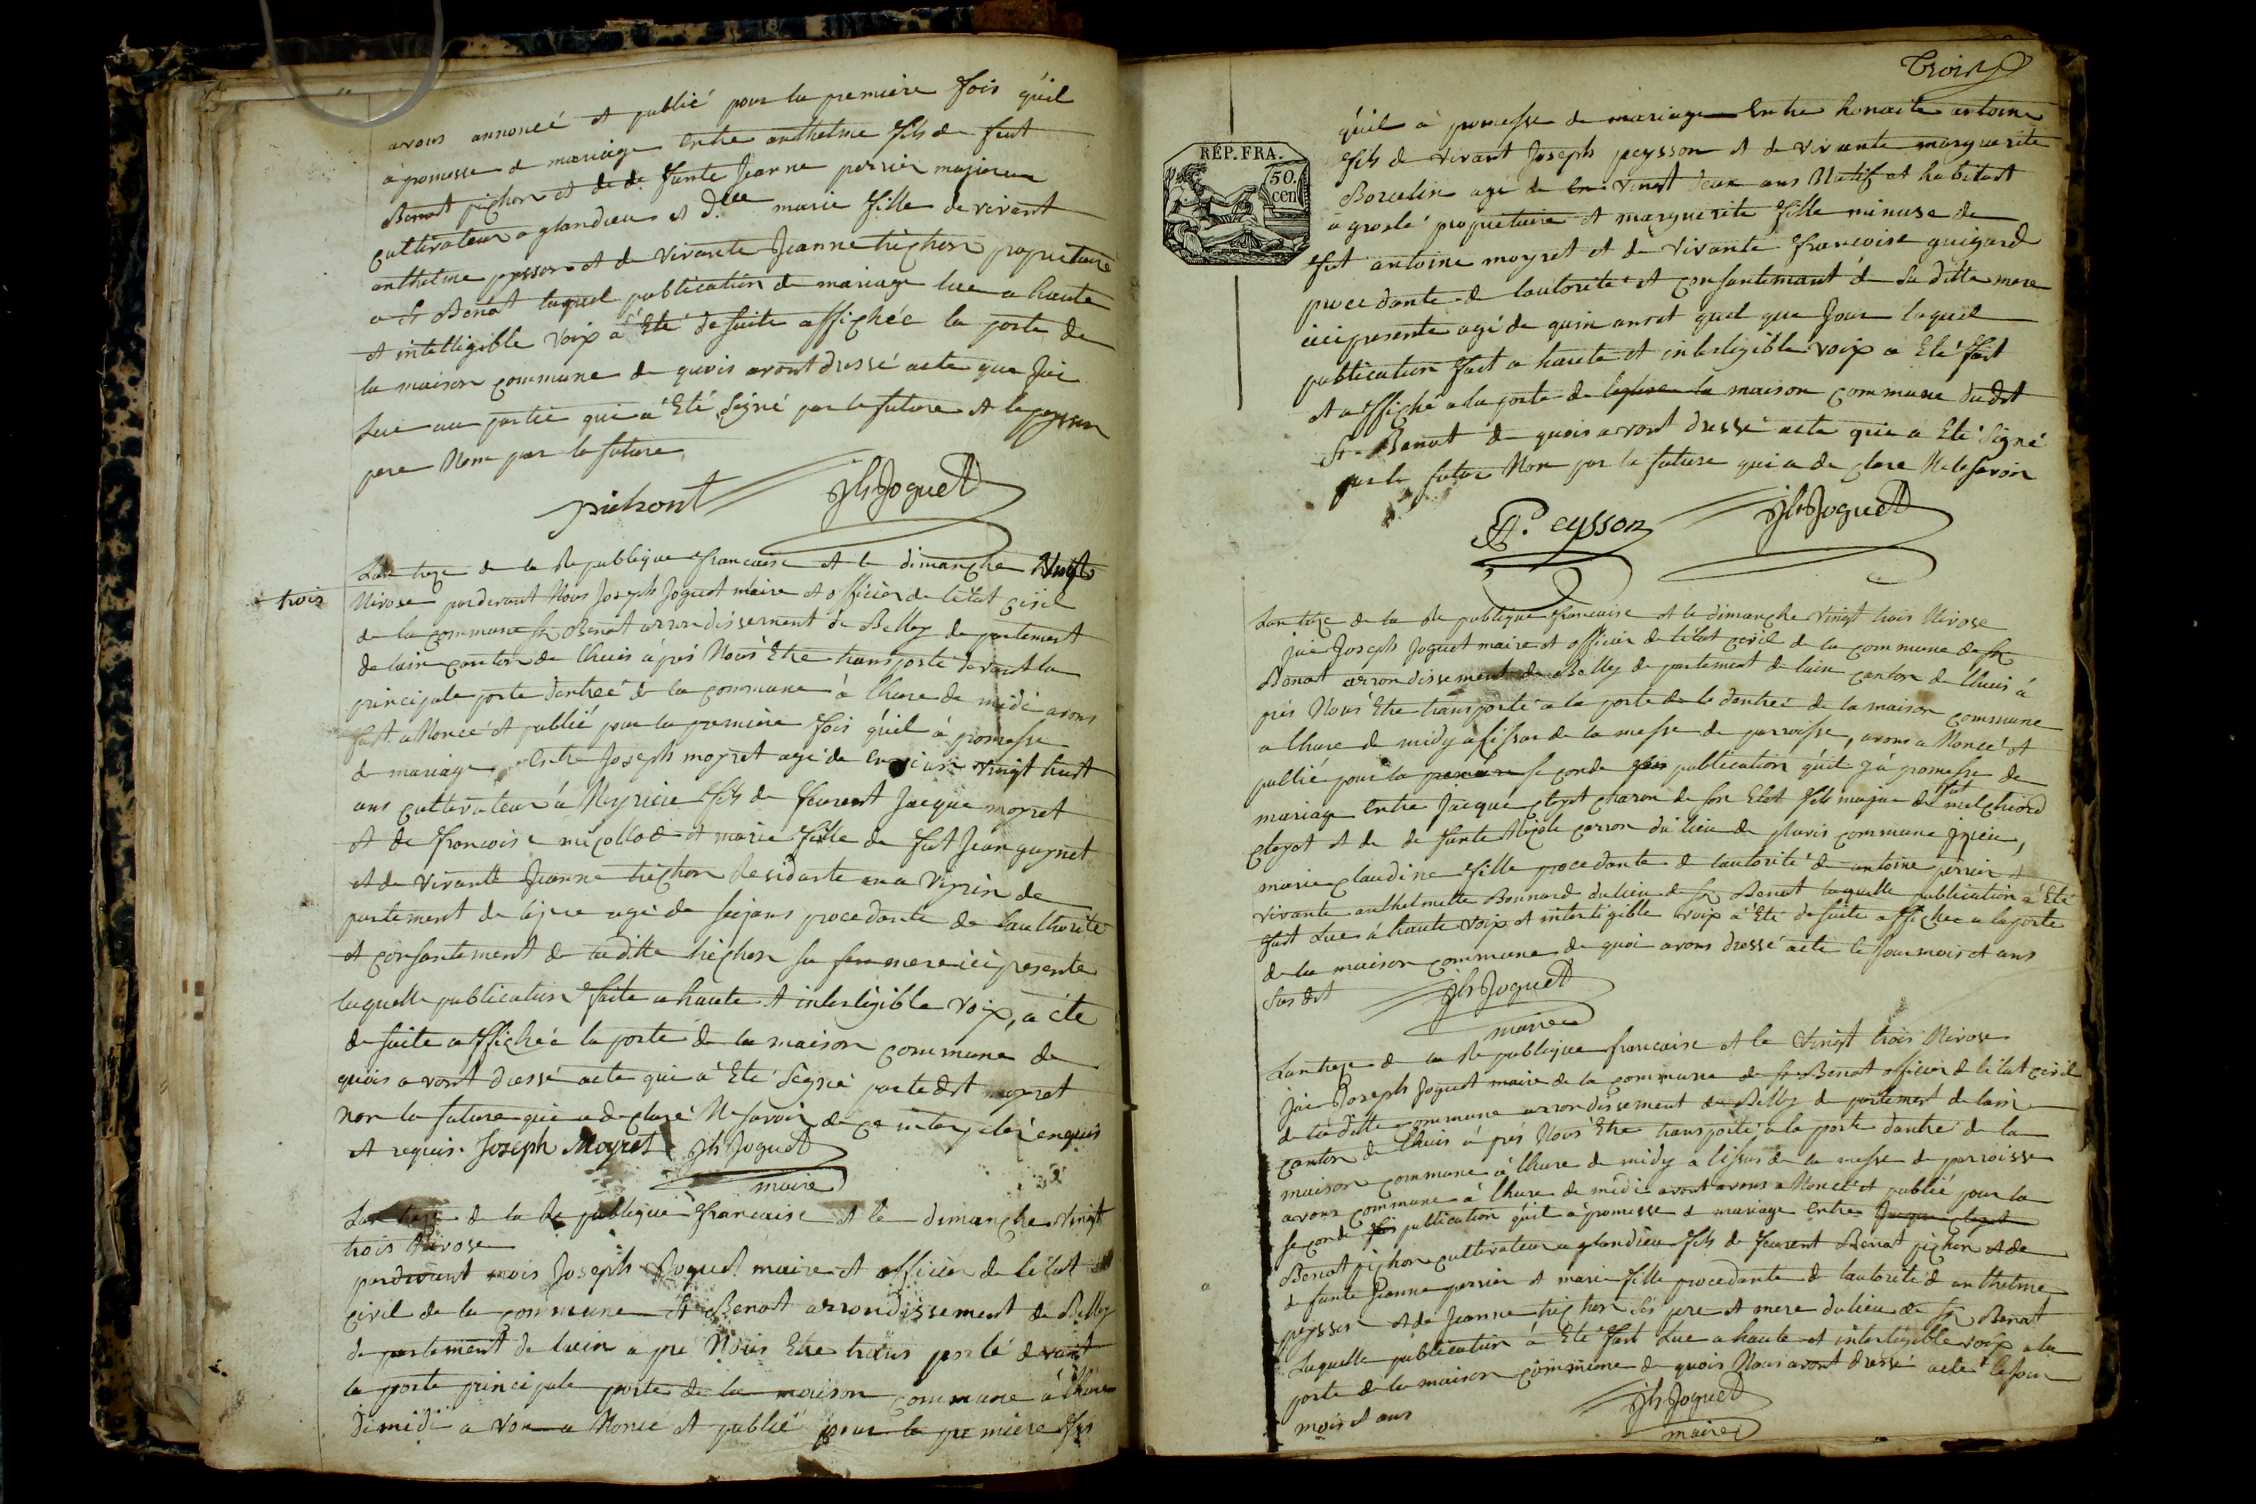 avons annoncé et publié pour la premiere fois quil
à promesse de mariage entre anthelme fils de feut
Benoat pichon et de de funte Jeanne perrin majeur
cultivateur a glandieu et dlle marie fille de vivant
anthelme peysson et de vivante Jeanne trichon propriétaire
a St Benoat laquel publication de mariage lue a haute
et intelligible voix à Eté de suite affichée la porte de
la maison commune de quois avont dressé acte que Jai
Lue au partie qui à Eté Signé par le future et le peysson
pere Non par la future
pichont JhJoguet
trois
Lan treze de la Republique francaise et le dimanche Vingt
Nivose pardevant Nous Joseph Joguet maire et officier de letat civil
de la commune St Benoat arrondissement de Belley departement
de lain canton de lhuis à prés Nous Etre transporté devant la
principale porte dentreé de la commune à lhure de midi avons
fait a Noncé et publié pour la premiere fois quil à promesse
de mariage entre Joseph moyret agé de environ vingt huit
ans cultivateur à Meyrieu fils de feurent Jacque moyret
et de francoise micolloe et marie fille de fut Jean guynet
et de vivante Jeanne trichon Residante en a Virin de
partement de lisere agé de seijans procedante de lauthorité
et consantement de laditte trichon sa fem mere ici presente
laquelle publication faite a haute et interligible voix, a ete
de suite affichée la porte de la maison commune de
quois avont dressé acte qui à Eté Segné parledit moyret
non la future qui a declaré Ne savoir de ce interpelé enquis
et requis. Joseph Moyret JhJoguet
maire
Lan treze de la Republique francaise et le dimanche vingt
trois Nivose
pardevant nois Joseph Joguet maire et officier de letat
civil de la commune St Benoat arrondissement de Belley
departement de lain a pré Nous Etre trans porté devant
la porte principale porte de la maison commune à lhure
demidi a von a Noncé et publié pour la premiere fois
Trois
RÉP. FRA.
50.
cen
quil à promesse de mariage Entre honaite antoine
fils de vivant Joseph peysson et de vivante marguerite
Borcelin agé de en vingt deux ans Natif et habitant
a groslé propriétaire et marguerite fille minuse de
fut antoine moyret et de vivante francoise guigard
procedante de lautorité et consantemant de sa ditte mere
icipresente agé de quin anset quel que Jour laquel
publication fait a haute et interligible voix a Eté fait
et affiché a la porte de leglise la maison commune dudit
St Benoat de quois avont dressé acte qui a Eté Signé
par le futur Non par la future qui a de clare Nelesavoir
A. Peysson JhJoguet
Lan treze de la Republique francaise et le dimanche vingt trois Nivose
Jai Joseph Joguet maire et officier de létat civil de la commune de St
Benoat arrondissement de Belley de partement de lain canton de lhuis à
prés Nous Etre transporté a la porte de le dentreé de la maison commune
a lhure de midy alissue de la messe de parroisse, avons a Noncé et
publié pour la premiere seconde fois publication quil yà promesse de
mariage entre Jacque cloyot charon de son Etat fils majur de fut melchiord
cloyot et de de funte Nicole carron du lieu de pluvis commune iyieu,
marie claudine fille procedante de lautorité de antoine perrin et
vivante anthelmette Bonnard dulieu de St Benoat laquelle publication à Eté
fait Lue à haute voix et interligible voix à Eté de suite affichee a laporte
de la maison commune de quoi avons dressé acte le Jour mois et ans
sus dit JhJoguet
maire
Lan treze de la Republique francaise et le Vingt trois Nivose
Jai Joseph Joguet maire de la commune de St Benoat officier de létat civil
de la ditte commune arrondissement de Belley de partement de lain
canton de lhuis à prés Nous Etre transporté a la porte dantré de la
maison commune à lhure de midy a lissus de la messe de parroisse
avons commune à lhure de midi avont avons a Noncé et publié pour la
seconde fois publication quil à promesse de mariage entre Jacque cloyot
Benoat pichon cultivateur a glandieu fils de feurent Benoat pichon et de
de funte Jeanne perrin et marie fille procedante de lautorité de anthelme
peysson et de Jeanne trichon Ses pere et mere dulieu de St Benoat
Laquelle publication à Eté fait Lue a haute et interligible voix a la
porte de la maison commune de quois Nous avont dressé acte lesJour
mois et ans JhJoguet
maire